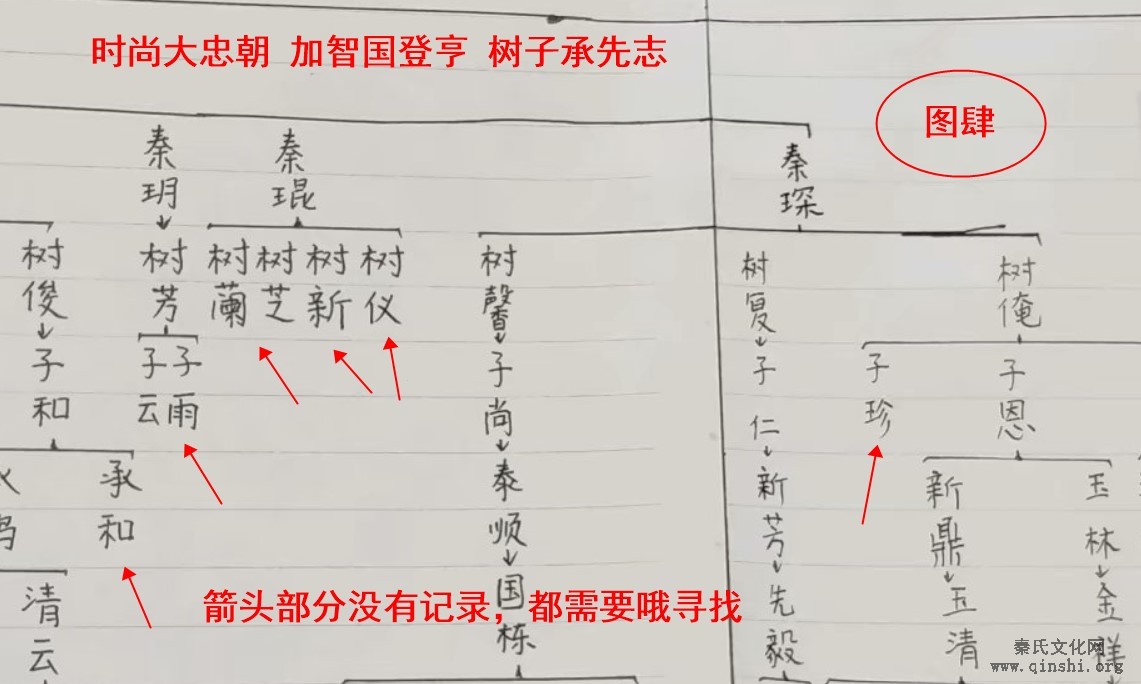 时尚大忠朝 加智国登亨 树子承先志
图肆
秦玥
秦琨
秦琛
树俊
树芳
树蘭
树芝
树新
树仪
树馨
树复
树俺
子和
子云
子雨
子尚
子仁
子珍
子恩
承和
泰顺
新芳
新鼎
玉林
清云
国栋
先毅
玉清
金祥
箭头部分没有记录，都需要哦寻找
秦氏文化网
www.qinshi.org